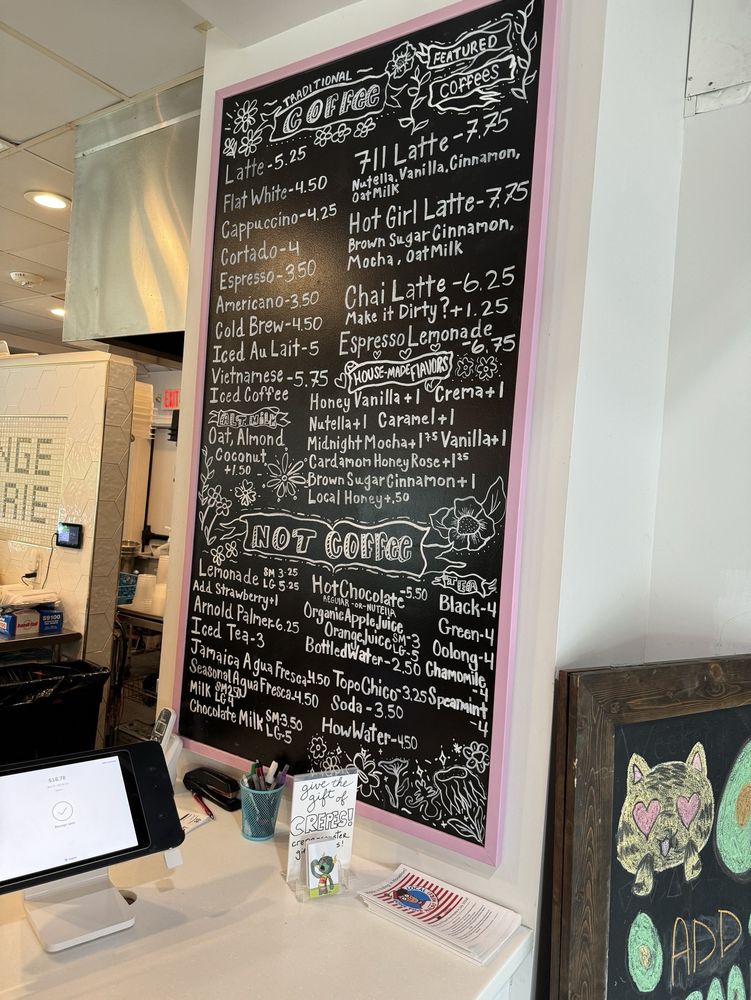 TRADITIONAL
COFFEE
Latte-5.25
Flat White-4.50
Cappuccino-4.25
Cortado-4
Espresso-3.50
Americano-3.50
Cold Brew-4.50
Iced Au Lait-5
Vietnamese-5.75
Iced Coffee
ALT. MILK
Oat, Almond
Coconut
+1.50
FEATURED
COFFEES
711 Latte-7.75
Nutella, Vanilla, Cinnamon,
Oat Milk
Hot Girl Latte-7.75
Brown Sugar Cinnamon,
Mocha, Oat Milk
Chai Latte-6.25
Make it Dirty?+1.25
Espresso Lemonade
-6.75
HOUSE-MADE FLAVORS
Honey Vanilla+1 Crema+1
Nutella+1 Caramel+1
Midnight Mocha+1.75 Vanilla+1
Cardamom Honey Rose+1.25
Brown Sugar Cinnamon+1
Local Honey+.50
NOT COFFEE
Lemonade SM 3.25
LG 5.25
Add Strawberry+1
Arnold Palmer-6.25
Iced Tea-3
Jamaica Agua Fresca-4.50
Seasonal Agua Fresca-4.50
Milk SM 2.50
LG 4
Chocolate Milk SM 3.50
LG-5
Hot Chocolate-5.50
REGULAR -OR- NUTELLA
Organic Apple Juice
Orange Juice SM-3
LG-5
Bottled Water-2.50
Topo Chico-3.25
Soda-3.50
How Water-4.50
HOT TEA
Black-4
Green-4
Oolong-4
Chamomile
-4
Spearmint
-4
EXIT
NGE
RIE
give the
gift of
CREPES!
ADD